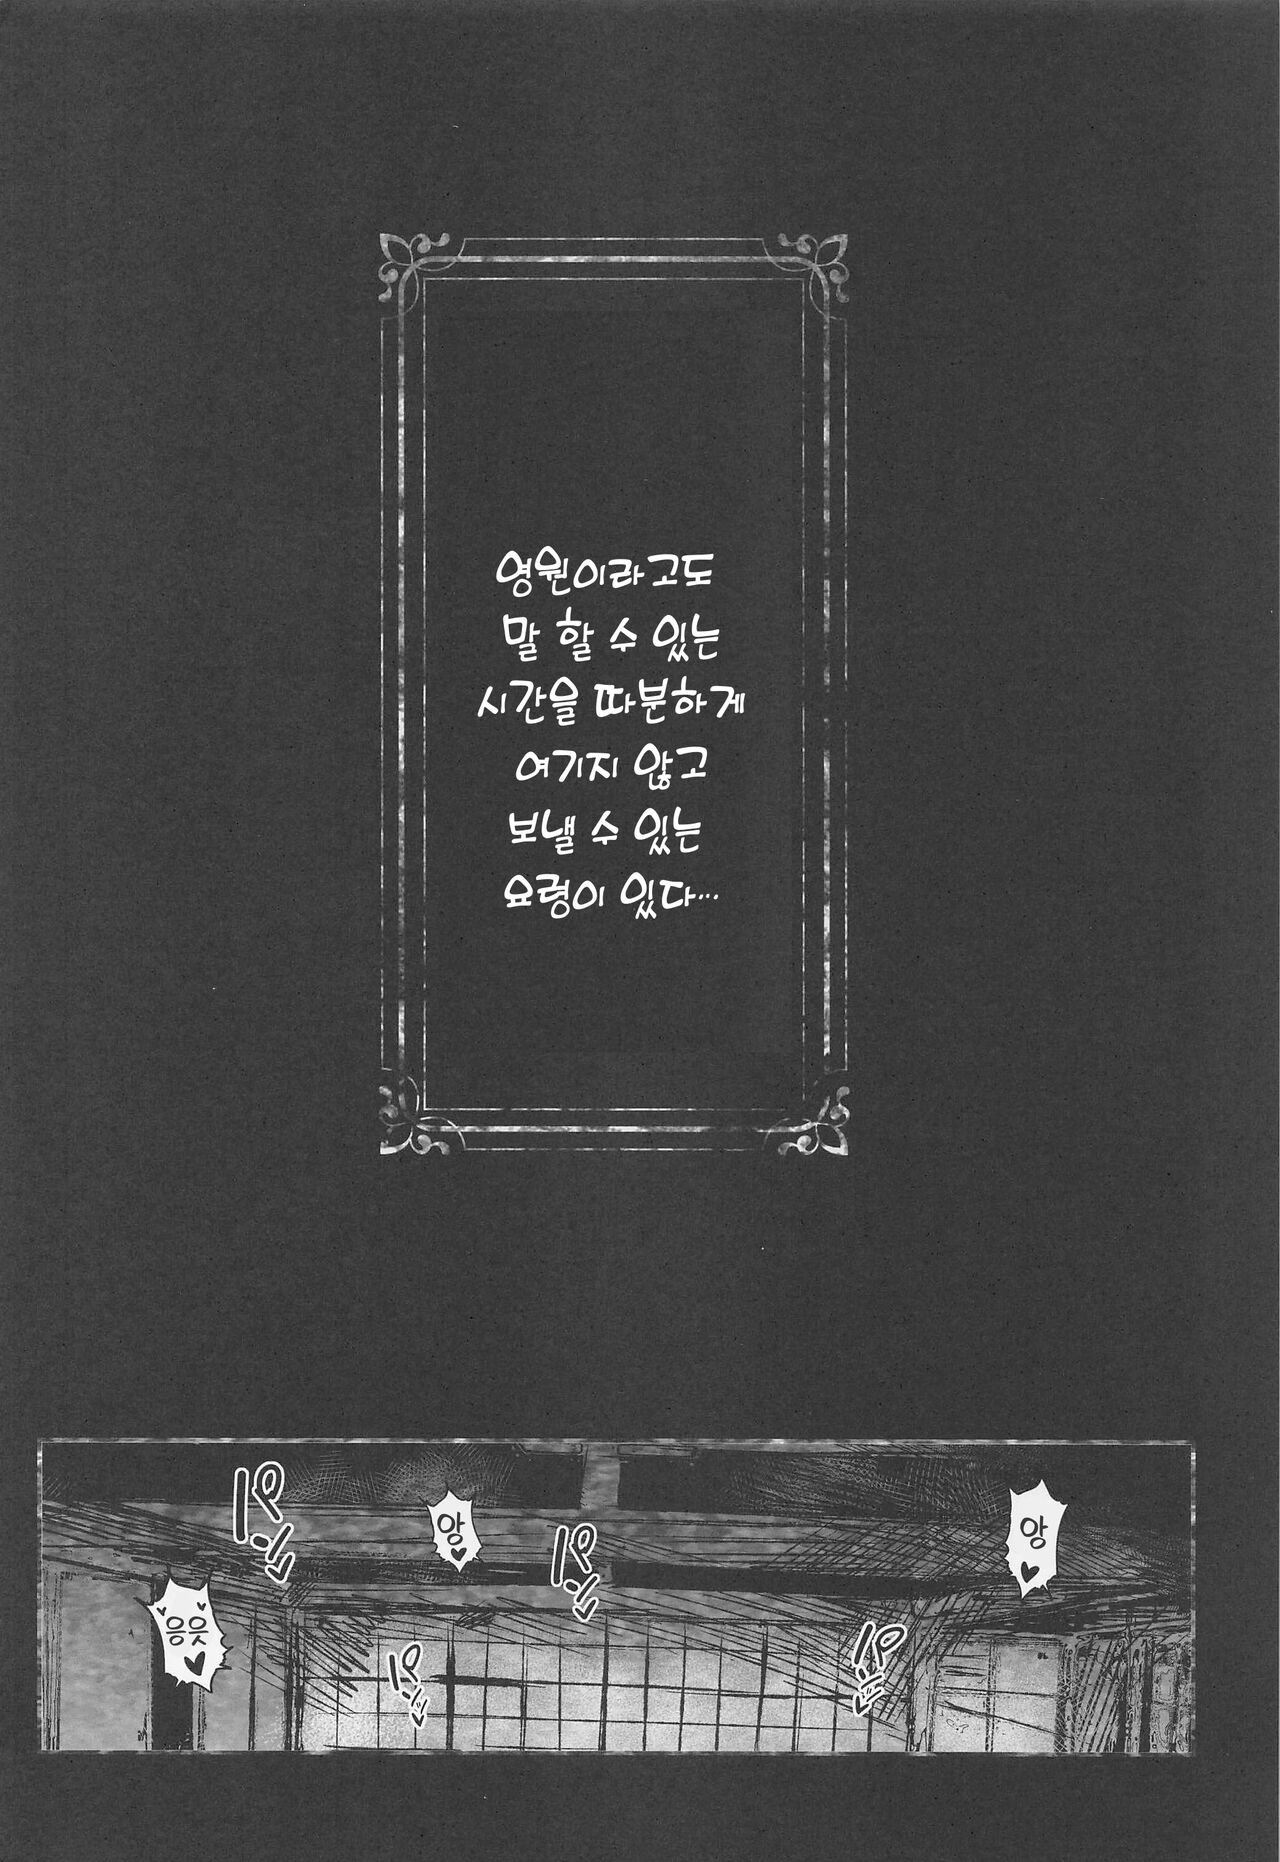 영원이라고도
말 할 수 있는
시간을 따분하게
여기지 않고
보낼 수 있는
요령이 있다…
앙♥
앙♥
응읏♥